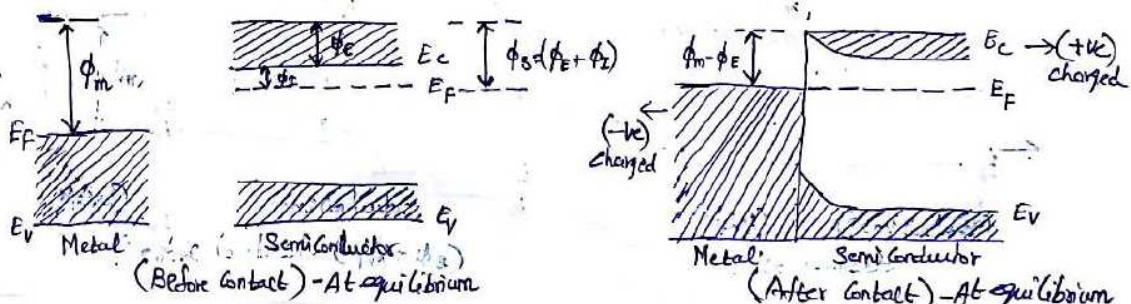 ϕm
EF
EV
Metal
ϕE
ϕI
EC
EF
ϕS=(ϕE+ϕI)
EV
SemiConductor
(Before Contact) - At equilibrium
ϕm-ϕE
(-ve)
charged
EC → (+ve)
charged
EF
EV
Metal
SemiConductor
(After Contact) - At equilibrium